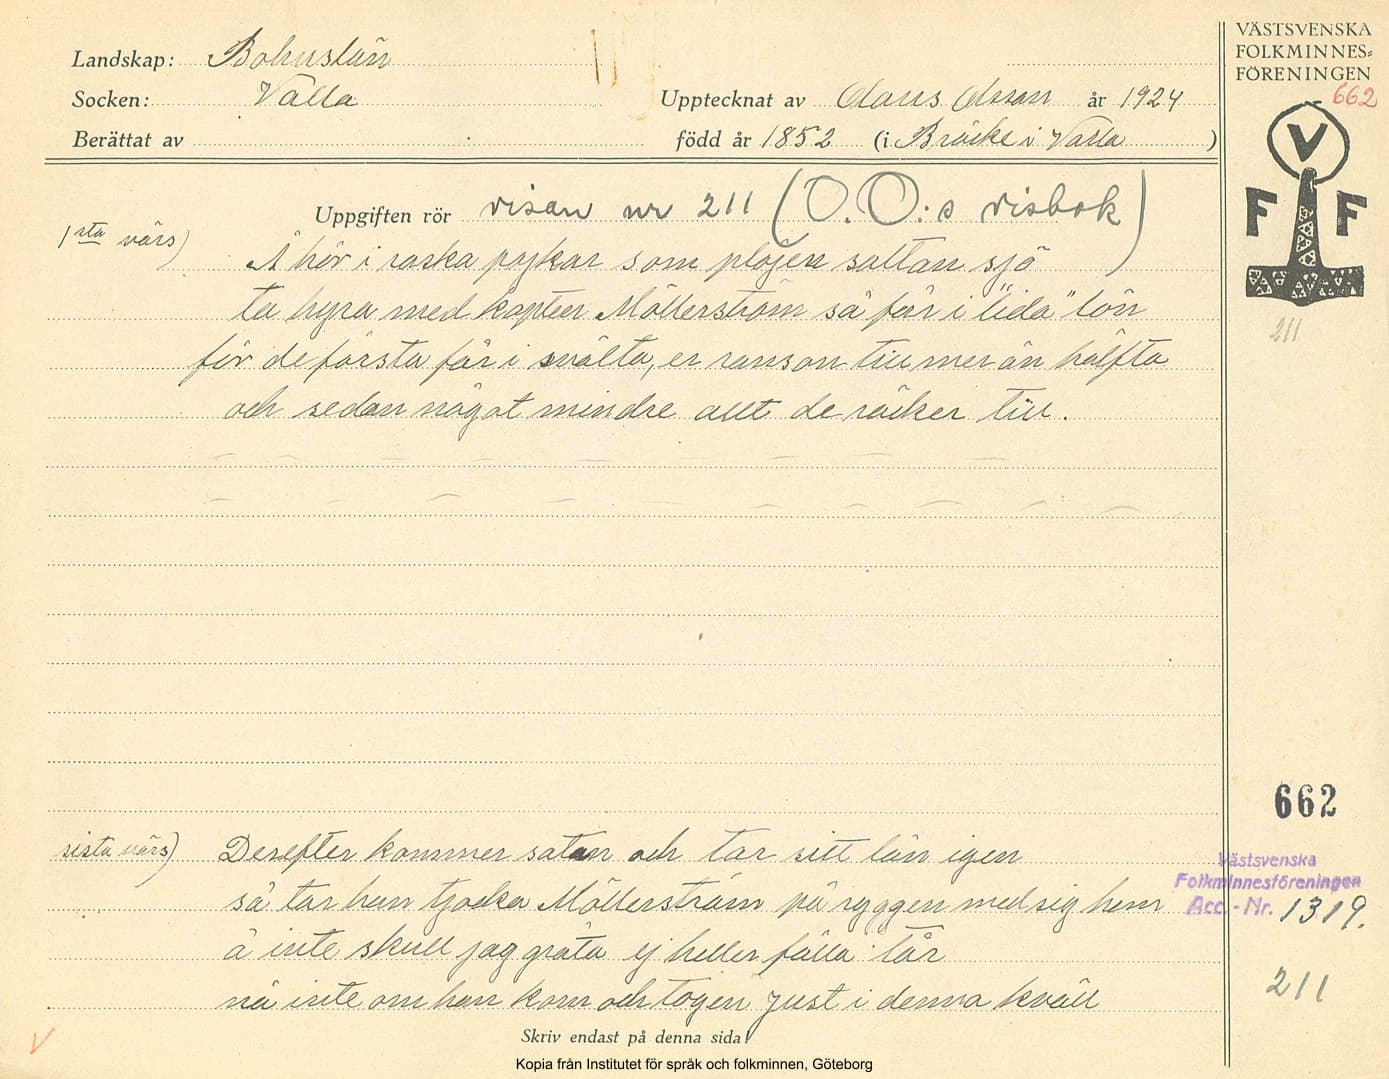 Landskap: Bohuslän
Socken: Valla
Berättat av
Upptecknat av Claus Olsson år 1924
född år 1852 (i Bräcke i Valla)
VÄSTSVENSKA
FOLKMINNES-
FÖRENINGEN
662
V
F F
211
Uppgiften rör visan nr 211 (O. O:s visbok)
1sta värs)
Å hör i raska pojkar som plöjen saltan sjö
ta hyra med kapten Möllerström så får i "lida" lön
för de första får i svälta, er ranson till mer än hälfta
och sedan något mindre allt de räcker till.
sista värs) Derefter kommer satan och tar sitt lån igen
så tar han tjocka Möllerström på ryggen med sig hem
å inte skull jag gråta ej heller fälla tår
nå inte om han kom och togen just i denna kväll
662
Västsvenska
Folkminnesföreningen
Acc.-Nr. 1319.
211
Skriv endast på denna sida!
Kopia från Institutet för språk och folkminnen, Göteborg